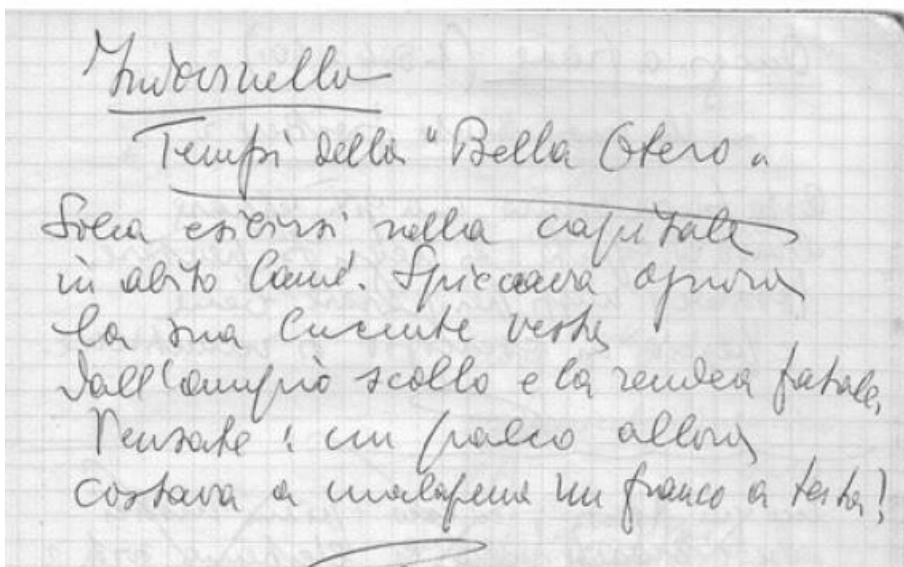 Indovinello
Tempi della "Bella Otero"
Solea esibirsi nella capitale
in abito lamé. Spiccava ognora
la sua lucente veste
dall'ampio scollo e la rendea fatale,
Pensate: un palco allora
costava a malapena un franco a testa!